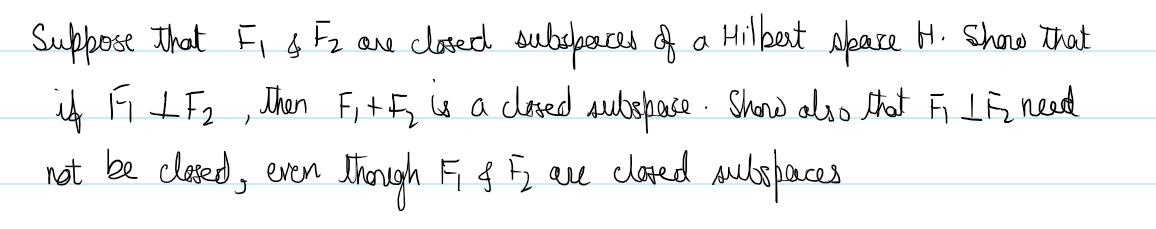 Suppose that F₁ & F₂ are closed subspaces of a Hilbert space H. Show that
if F₁ ⊥ F₂, then F₁ + F₂ is a closed subspace. Show also that F₁ ⊥ F₂ need
not be closed, even though F₁ & F₂ are closed subspaces